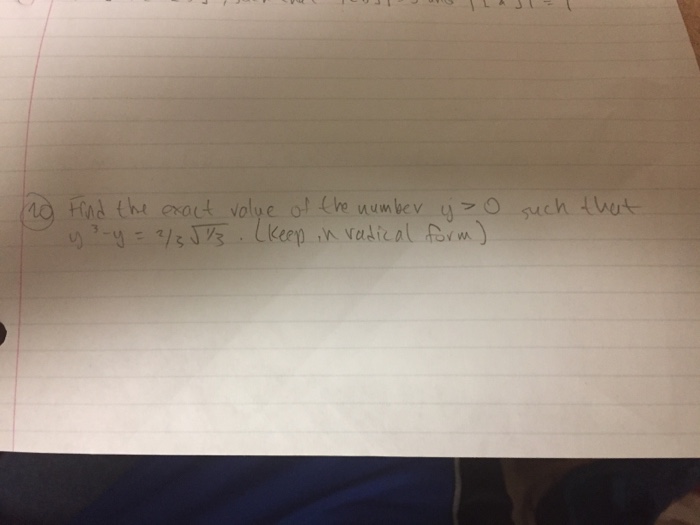 20 Find the exact value of the number y > 0 such that
y³-y = 2/3 √1/3 . (keep in radical form)